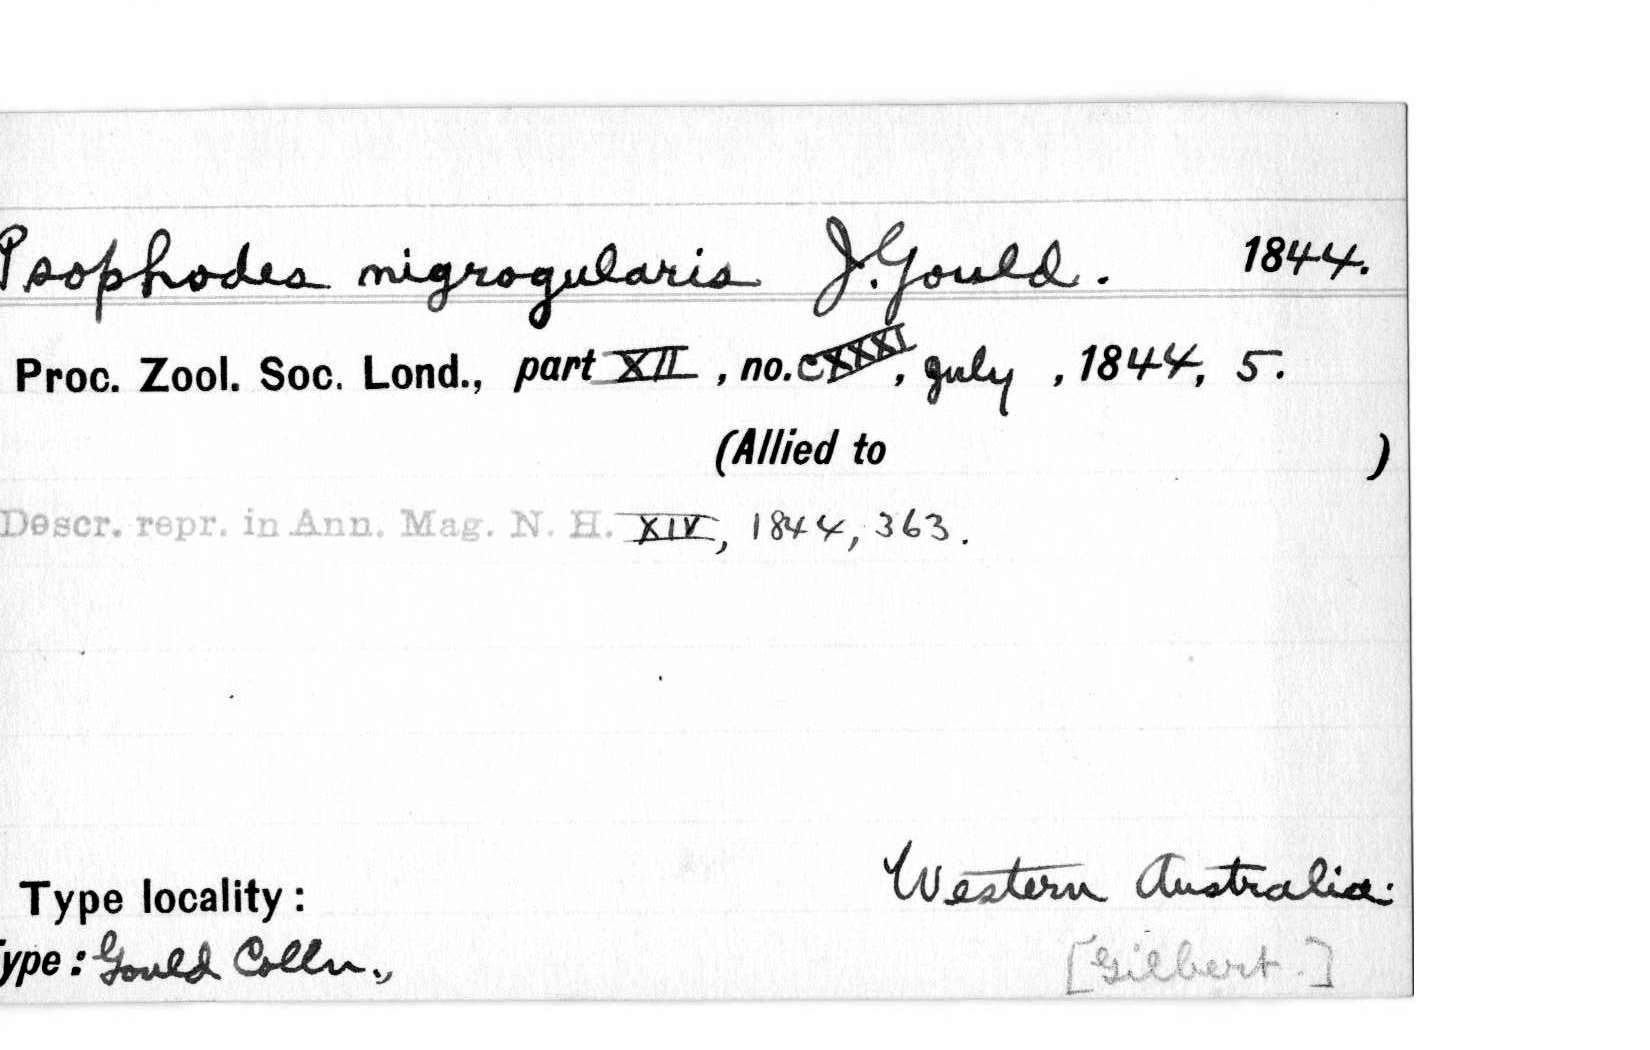 Psophodes nigrogularis J. Gould. 1844.
Proc. Zool. Soc. Lond., part XII, no. CXXXI, July, 1844, 5.
(Allied to )
Descr. repr. in Ann. Mag. N. H. XIV, 1844, 363.
Type locality: Western Australia:
ype: Gould Colln., [Gilbert.]